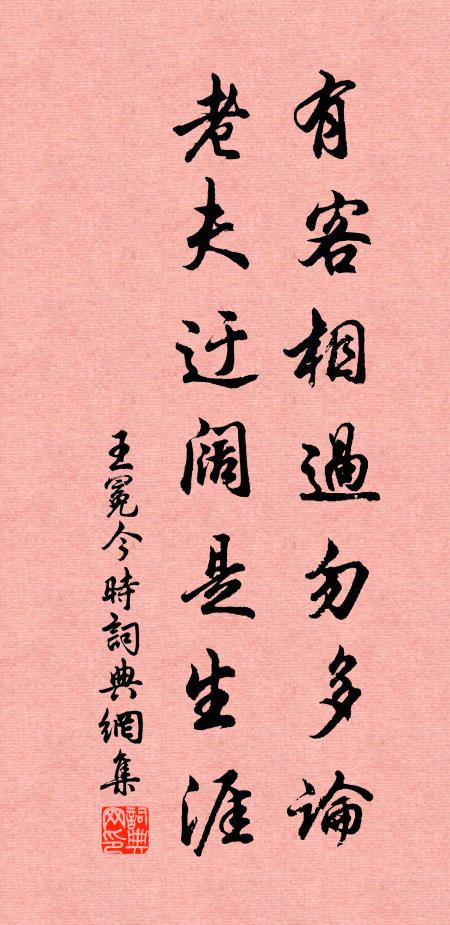 有客相過勿多論
老夫迂阔是生涯
王冕今時詞典網集
詞典网印